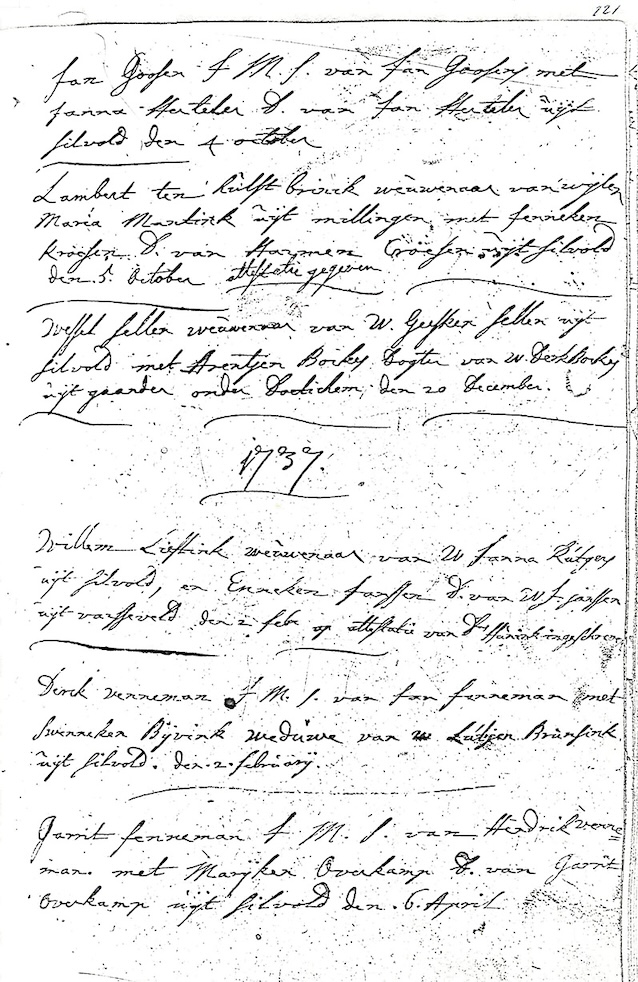 221
Jan Goosen J M. S. van Jan Goosens met
Janna Herteler D. van Jan Herteler uijt
Silvold den 4 october
Lambert ten Hulst brinck weuwenaar van wijlen
Maria Mantink uijt millingen met Jenneken
Kroesen D. van Harmen Croesen uijt Silvold
den 5 October attestatie gegeven
Wessel Sellen weuwenaar van W. Geesken Sellen uijt
Silvold met Arentjen Boekes Dogter van W. Derk Boekes
uijt gaarder onder Doetichem, den 20 December.
1737.
Willem Lieftink weuwenaar van W Janna Rutgers
uijt Silvold, en Enneken Janssen D. van W J. Janssen
uijt varsseveld den 2 febr op attestatie van Ds ingeschreven
Derck venneman J M. S. van Jan fenneman met
Swenneken Bijvink weduwe van w Lutjen Brunsink
uijt Silvold. den 2. februarij.
Garrit fenneman J M. S. van Hendrik venne=
man. met Marijken Overkamp D. van Garrit
Overkamp uijt Silvold den. 6. April